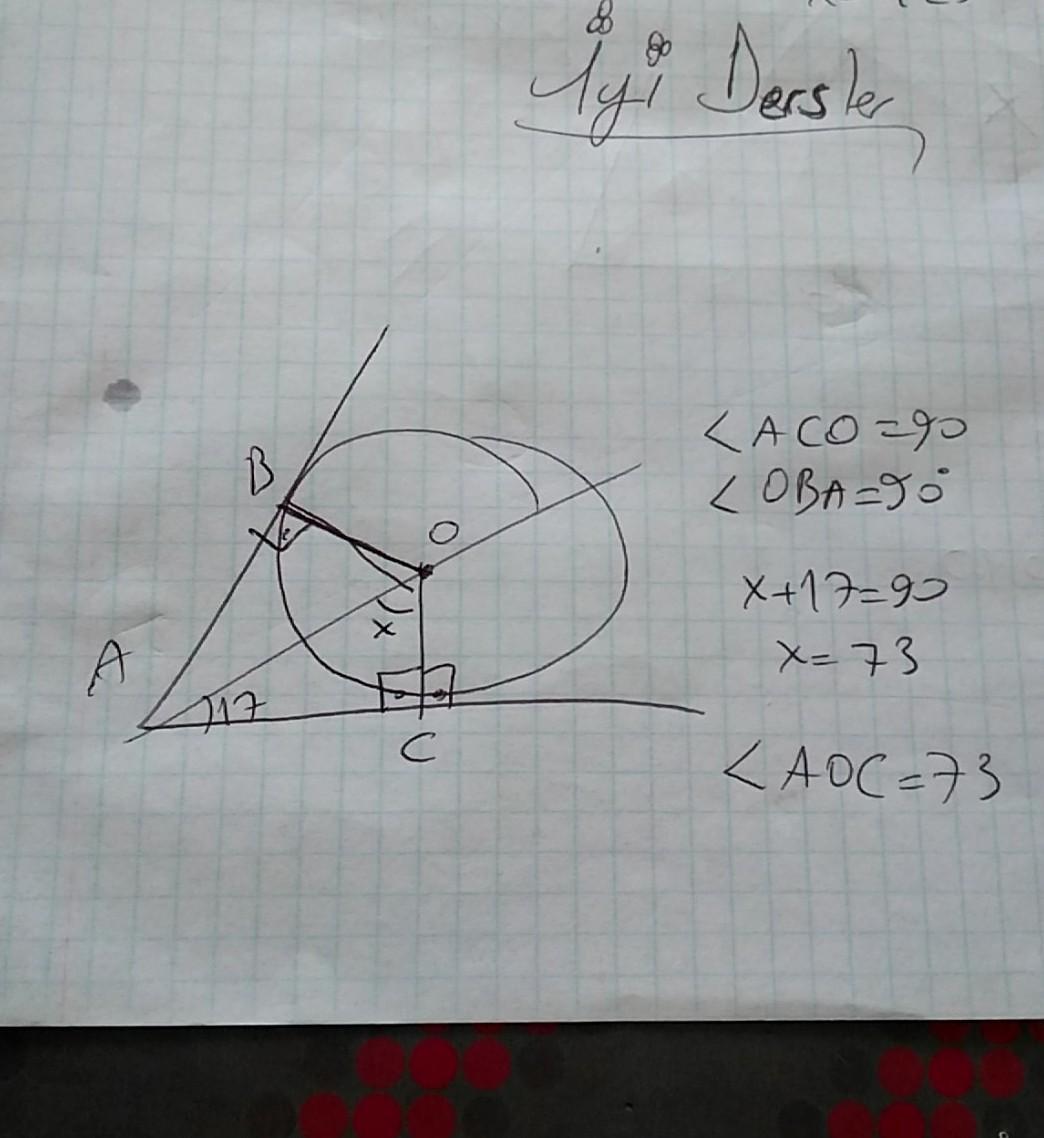 İyi Dersler
B
<ACO=90
<OBA=90°
O
x+17=90
x
x=73
A
17
C
<AOC=73